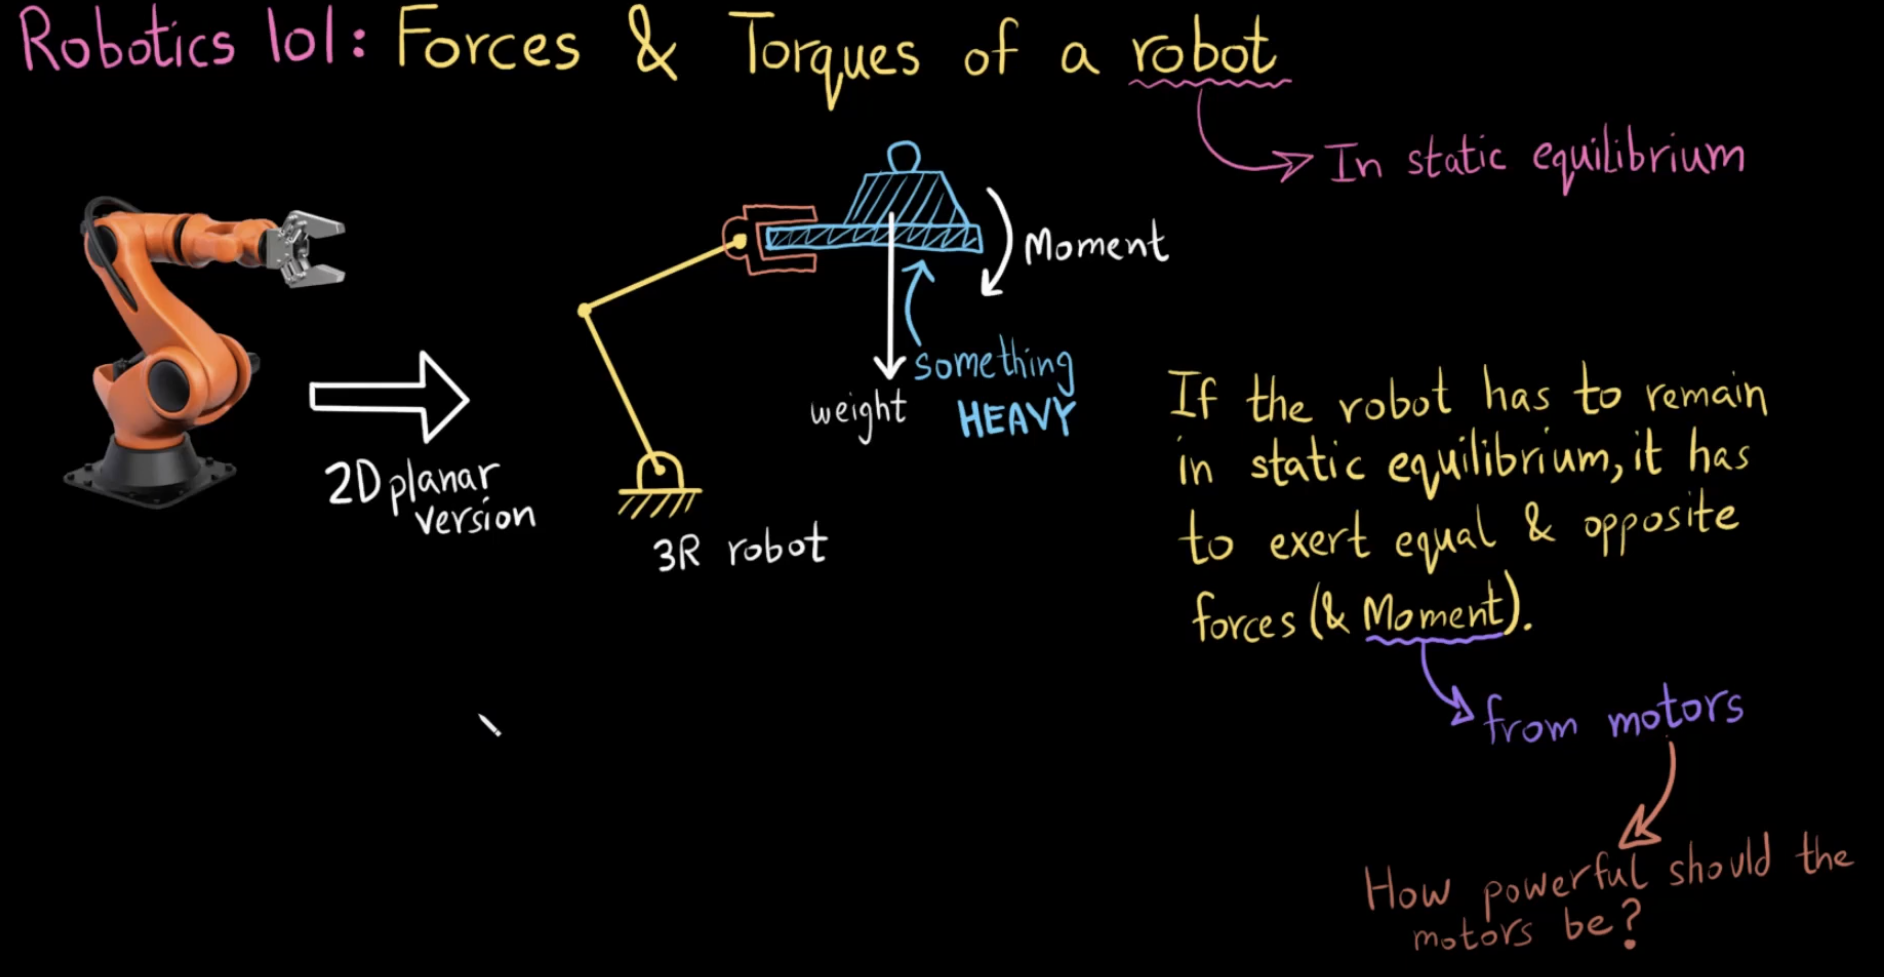 Robotics 101: Forces & Torques of a robot
In static equilibrium
Moment
something
HEAVY
weight
2D planar
version
3R robot
If the robot has to remain
in static equilibrium, it has
to exert equal & opposite
forces (& Moment).
from motors
How powerful should the
motors be?